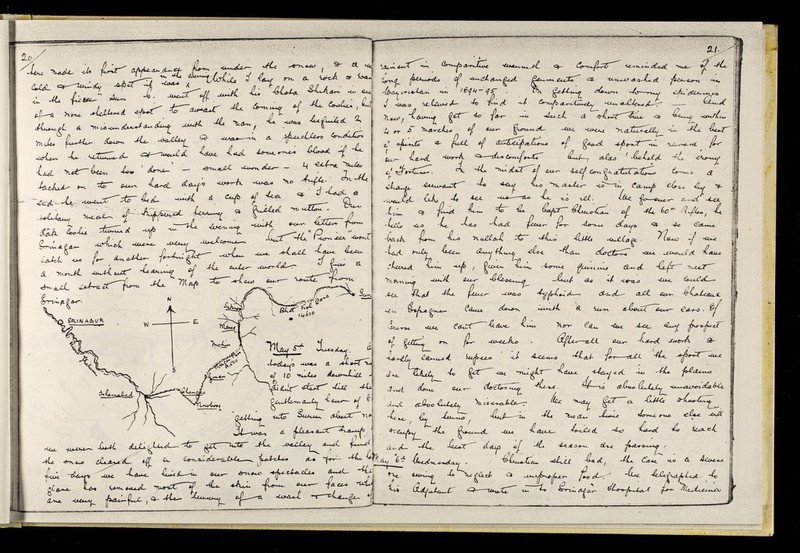 20
here made its first appearance from under the snow, & a
cold & windy spot it was in the evening. While I lay on a rock &
in the fierce sun S. went off with his Chota Shikari in
of a more sheltered spot to await the coming of the coolies,
through a misunderstanding with the man, he was beguiled 2
miles further down the valley & was in a speechless condition
when he returned & would have had someone's blood if he
had not been too 'done' – small wonder – 4 extra miles
tacked on to our hard day's work was no trifle. In the
end he went to bed with a cup of tea & I had a
solitary meal of kippered herring & grilled mutton. Our
Dak Coolie turned up in the evening with our letters from
Srinagar which were very welcome but the "Pioneer" wont
catch us for another fortnight when we shall have been
a month without hearing of the outer world. I give a
small extract from the Map to show our route from
Srinagar
SRINAGUR
N
W
E
Islamabad
May 5th Tuesday.
today's was a short
of 10 miles downhill
didnt start till the
gentlemanly hour of
getting into Suru about
It was a pleasant tramp,
we were both delighted to get into the valley and find
the snow cleared off in considerable patches as for the
few days we have lived in our snow spectacles and the
glare has removed most of the skin from our faces
are very painful, & the luxury of a wash & change
21
raiment in comparative warmth & comfort reminded me of the
long periods of unchanged garments & unwashed person in
Waziristan in 1894-95. On getting down to my epidermis
I was relieved to find it comparatively unaltered. And
now, having got so far in such a short time & being within
4 or 5 marches of our ground we were naturally in the best
of spirits & full of anticipations of good sport in reward for
our hard work & discomforts but, alas! behold the irony
of Fortune. In the midst of our self congratulations comes a
strange servant to say his master is in camp close by &
would like to see us as he is ill. We go over and see
him & find him to be Capt Christian of the 60th Rifles, he
tells us he has had fever for some days & so came
back from his nullah to this little village. Now if we
had only been anything else than doctors we would have
cheered him up, given him some quinine and left next
morning with our blessing, but as it was we could
see that the fever was typhoid and all our Chateaux
en Espagne came down with a run about our ears. Of
course we cant leave him nor can we see any prospect
of getting on for weeks. After all our hard work &
hardly earned rupees it seems that for all the sport we
are likely to get we might have stayed in the plains
and done our doctoring there. It is absolutely unavoidable
and absolutely miserable. We may get a little shooting
here, by turns, but in the mean time someone else will
occupy the ground we have toiled so hard to reach
and the best days of the season are passing.
May 6th Wednesday. Christian still bad, the case is a severe
one owing to neglect & improper food. We telegraphed to
his Adjutant & wrote in to Srinagar Hospital for Medicines